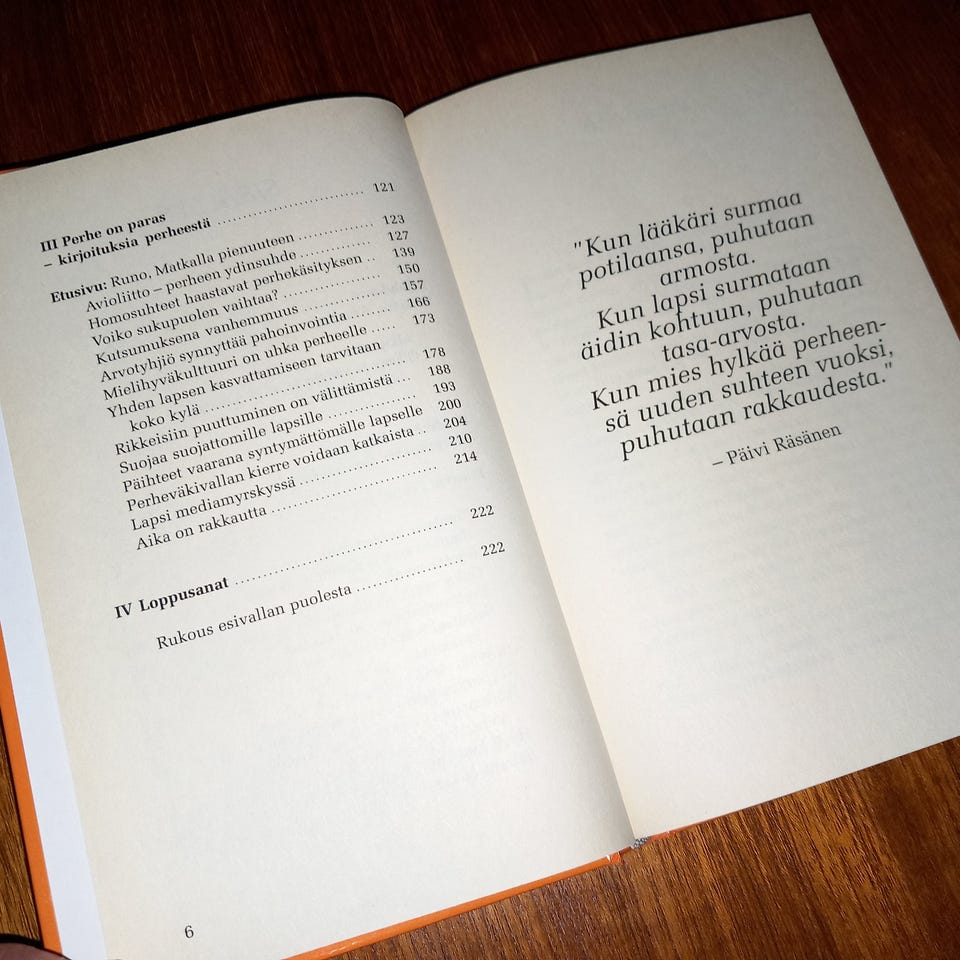 III Perhe on paras
– kirjoituksia perheestä ........................ 121
Etusivu: Runo, Matkalla pienuuteen ............ 123
Avioliitto – perheen ydinsuhde .................. 127
Homosuhteet haastavat perhekäsityksen .. 139
Voiko sukupuolen vaihtaa? ................ 150
Kutsumuksena vanhemmuus .................. 157
Arvotyhjiö synnyttää pahoinvointia ........ 166
Mielihyväkulttuuri on uhka perheelle ..... 173
Yhden lapsen kasvattamiseen tarvitaan
koko kylä ................................ 178
Rikkeisiin puuttuminen on välittämistä ... 188
Suojaa suojattomille lapsille .................. 193
Päihteet vaarana syntymättömälle lapselle 200
Perheväkivallan kierre voidaan katkaista .. 204
Lapsi mediamyrskyssä ...................... 210
Aika on rakkautta ............................ 214
IV Loppusanat .................................. 222
Rukous esivallan puolesta .................. 222
6
"Kun lääkäri surmaa
potilaansa, puhutaan
armosta.
Kun lapsi surmataan
äidin kohtuun, puhutaan
tasa-arvosta.
Kun mies hylkää perheen-
sä uuden suhteen vuoksi,
puhutaan rakkaudesta."
– Päivi Räsänen